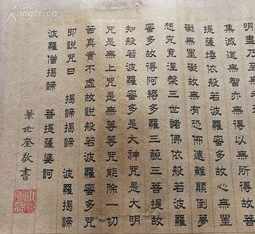 明盡乃至無老死亦無老死盡無苦
集滅道無智亦無得以無所得故菩
提薩埵依般若波羅蜜多故心無罣
礙無罣礙故無有恐怖遠離顛倒夢
想究竟涅槃三世諸佛依般若波羅
蜜多故得阿耨多羅三藐三菩提故
知般若波羅蜜多是大神咒是大明
咒是無上咒是無等等咒能除一切
苦真實不虛故說般若波羅蜜多咒
即說咒曰 揭諦揭諦 波羅揭諦
波羅僧揭諦 菩提薩婆訶
華世奎敬書